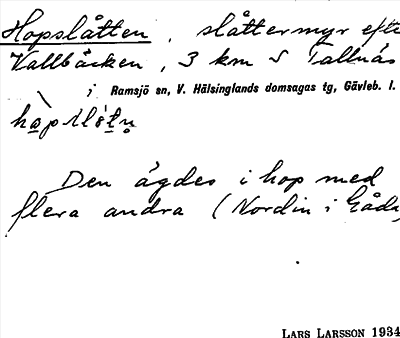 Hopslåtten, slåttermyr efte
Vallbäcken, 3 km S Tallnäs
i Ramsjö sn, V. Hälsinglands domsagas tg, Gävleb. l.
Den ägdes i hop med
flera andra (Nordin i Gåda
LARS LARSSON 1934